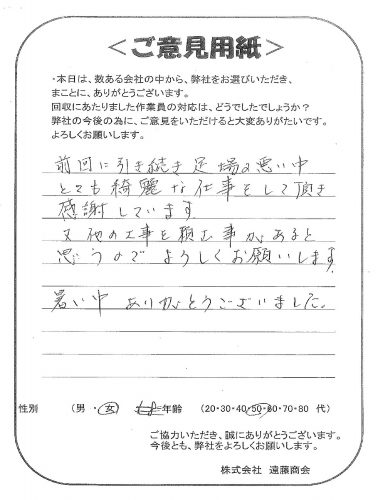 ＜ご意見用紙＞
・本日は、数ある会社の中から、弊社をお選びいただき、
まことに、ありがとうございます。
回収にあたりました作業員の対応は、どうでしたでしょうか？
弊社の今後の為に、ご意見をいただけると大変ありがたいです。
よろしくお願いします。
前回に引き続き足場の悪い中
とても綺麗な仕事をして頂き
感謝しています
又他の工事を頼む事があると
思うので よろしくお願いします
暑い中 ありがとうございました。
性別 （男・女） 年齢 （20・30・40・50・60・70・80 代）
ご協力いただき、誠にありがとうございます。
今後とも、弊社をよろしくお願いします。
株式会社 遠藤商会